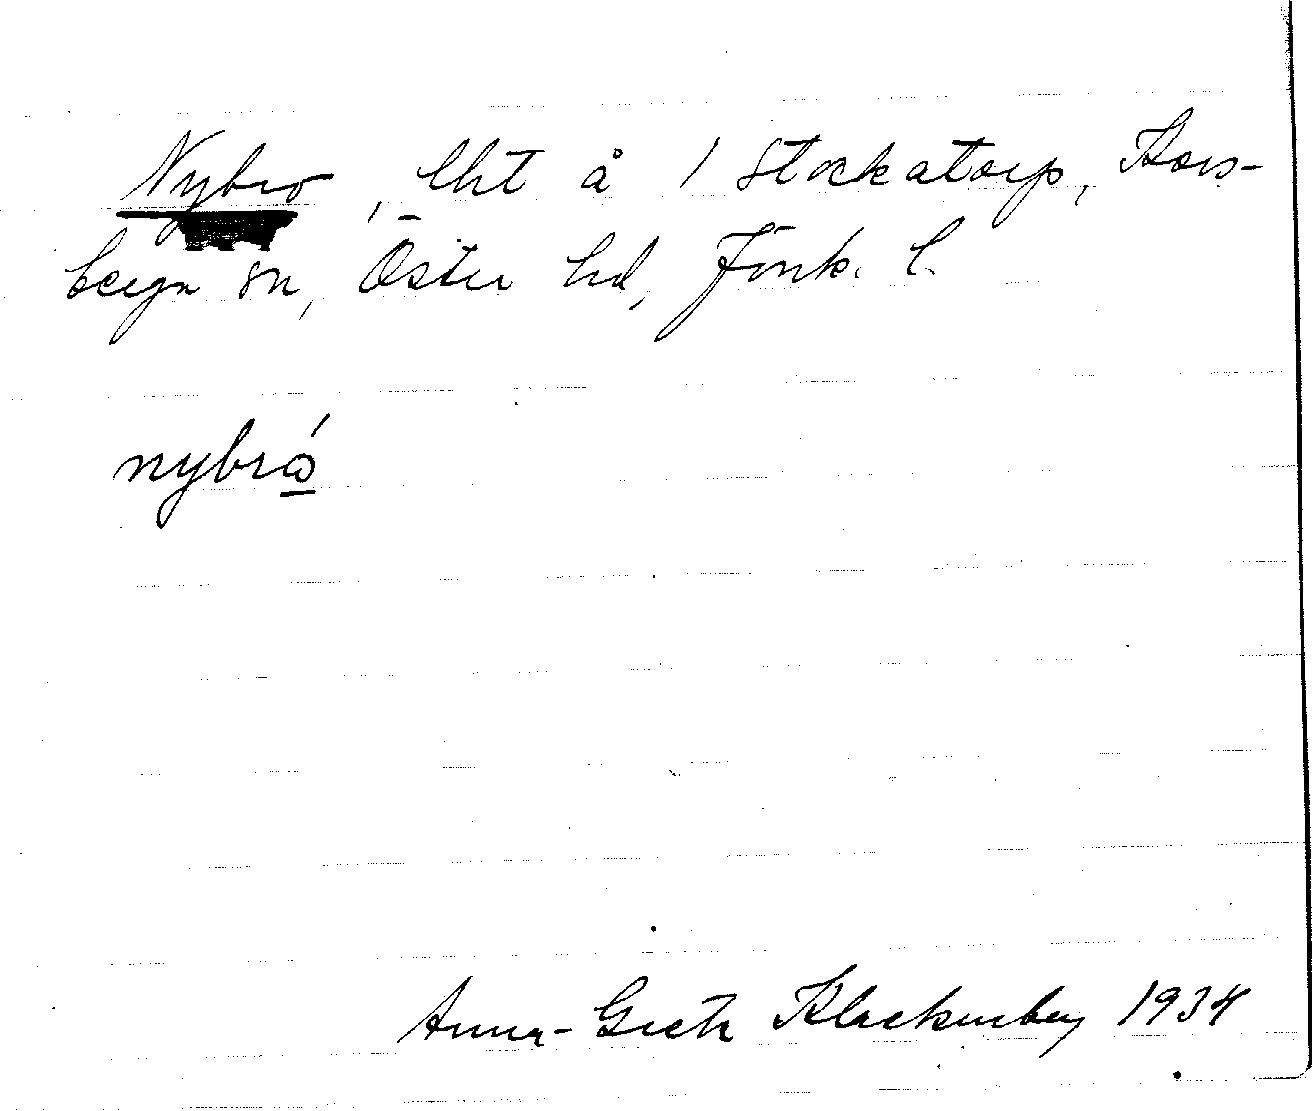 Nybro, lht å 1 Stockatorp, Kors-
berga sn, Östra hd, Jönk. l.
nybró̲
Anna-Greta Klackenberg 1934